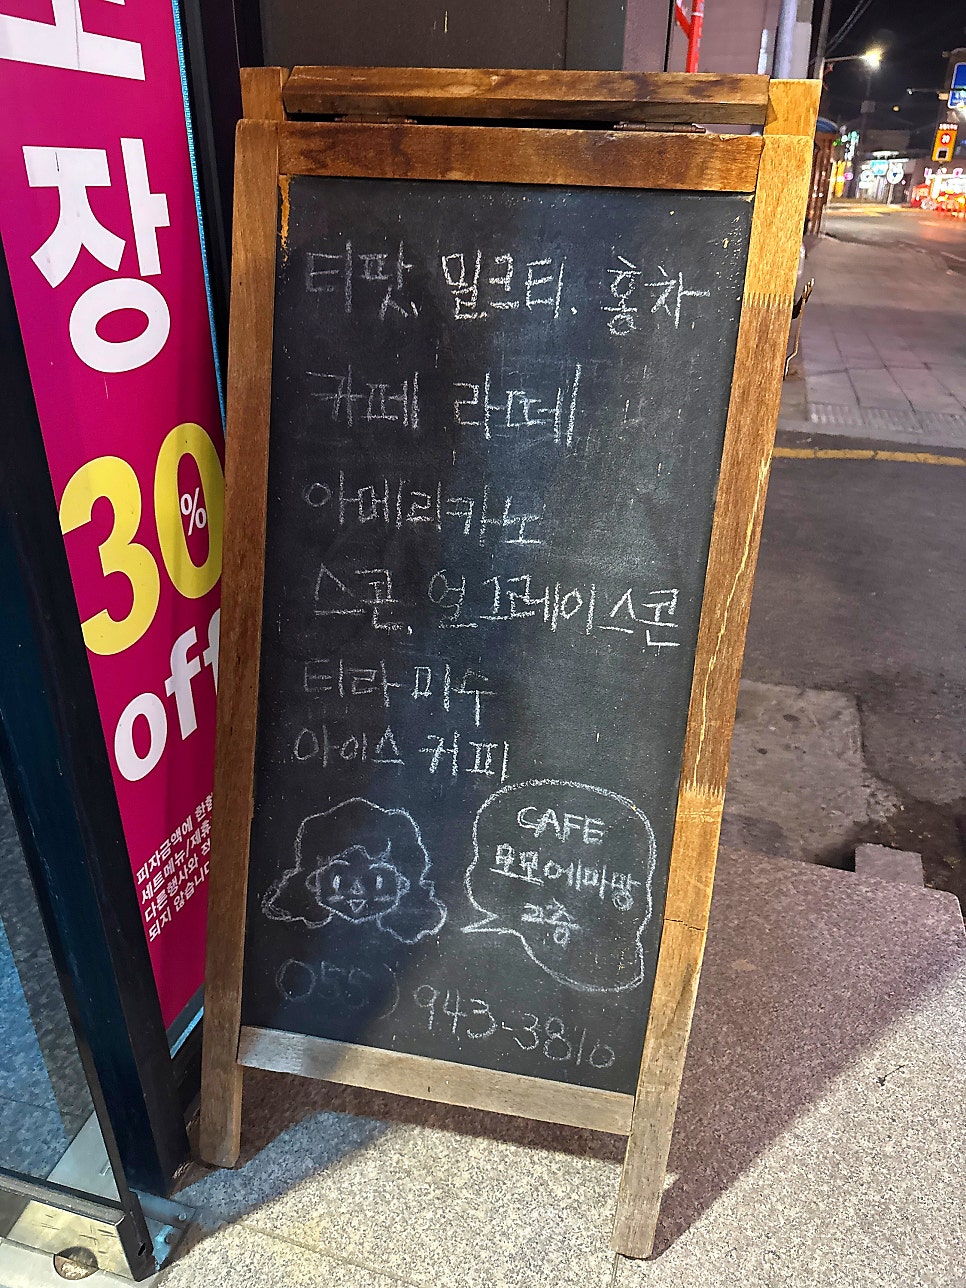 장
30%
off
피자금액에 한함
세트메뉴/제휴
다른행사와 적
되지 않습니다
티팟, 밀크티, 홍차
카페 라떼
아메리카노
스콘, 얼그레이스콘
티라미수
아이스 커피
CAFE
모모에미망
2층
055) 943-3810